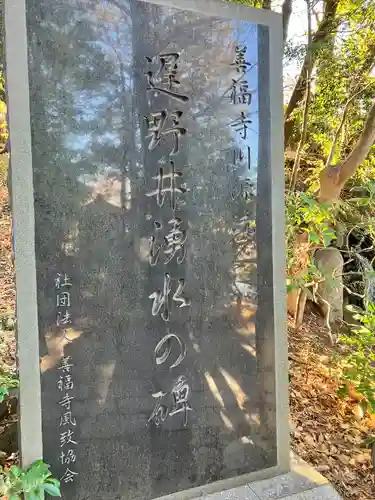 善福寺川源流
遅野井湧水の碑
社団法人 善福寺風致協会